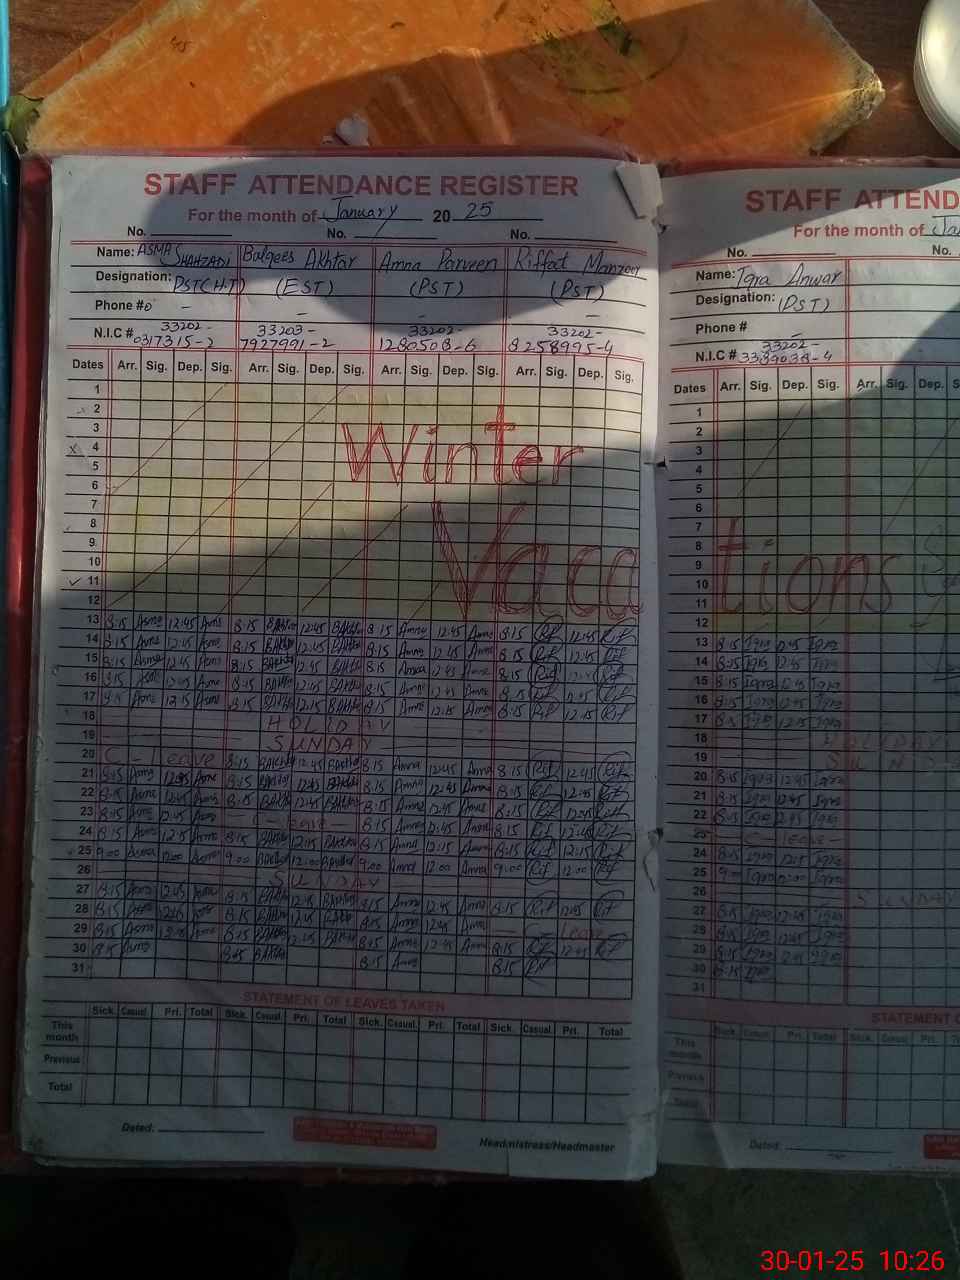 STAFF ATTENDANCE REGISTER
For the month of January 20 25
No. No. No.
Name: ASMA SHAHZADI Balqees Akhtar Amna Parveen Riffat Manzoor
Designation: PST(H.T) (EST) (PST) (PST)
Phone # - - - -
N.I.C # 33202-0317315-2 33203-7927991-2 33202-1280508-6 33202-8258995-4
Dates Arr. Sig. Dep. Sig. Arr. Sig. Dep. Sig. Arr. Sig. Dep. Sig. Arr. Sig. Dep. Sig.
1
2
3
4
5
6
7
8
9
10
11
12
Winter
Vaca
13 8:15 Asma 12:45 Asma 8:15 BAkhtar 12:45 BAkhtar 8:15 Amna 12:45 Amna 8:15 Rif 12:45 Rif
14 8:15 Asma 12:45 Asma 8:15 BAkhtar 12:45 BAkhtar 8:15 Amna 12:45 Amna 8:15 Rif 12:45 Rif
15 8:15 Asma 12:45 Asma 8:15 BAkhtar 12:45 BAkhtar 8:15 Amna 12:45 Amna 8:15 Rif 12:45 Rif
16 8:15 Asma 12:45 Asma 8:15 BAkhtar 12:45 BAkhtar 8:15 Amna 12:45 Amna 8:15 Rif 12:45 Rif
17 8:15 Asma 12:15 Asma 8:15 BAkhtar 12:15 BAkhtar 8:15 Amna 12:15 Amna 8:15 Rif 12:15 Rif
18 HOLIDAY
19 SUNDAY
20 C - Leave 8:15 BAkhtar 12:45 BAkhtar 8:15 Amna 12:45 Amna 8:15 Rif 12:45 Rif
21 8:15 Asma 12:45 Asma 8:15 BAkhtar 12:45 BAkhtar 8:15 Amna 12:45 Amna 8:15 Rif 12:45 Rif
22 8:15 Asma 12:45 Asma 8:15 BAkhtar 12:45 BAkhtar 8:15 Amna 12:45 Amna 8:15 Rif 12:45 Rif
23 8:15 Asma 12:45 Asma C - leave 8:15 Amna 12:45 Amna 8:15 Rif 12:45 Rif
24 8:15 Asma 12:15 Asma 8:15 BAkhtar 12:15 BAkhtar 8:15 Amna 12:15 Amna 8:15 Rif 12:15 Rif
25 9:00 Asma 12:00 Asma 9:00 BAkhtar 12:00 BAkhtar 9:00 Amna 12:00 Amna 9:00 Rif 12:00 Rif
26 SUNDAY
27 8:15 Asma 12:45 Asma 8:15 BAkhtar 12:45 BAkhtar 8:15 Amna 12:45 Amna 8:15 Rif 12:45 Rif
28 8:15 Asma 12:45 8:15 BAkhtar 12:45 BAkhtar 8:15 Amna 12:45 Amna C - Leave
29 8:15 Asma 12:45 Asma 8:15 BAkhtar 12:45 BAkhtar 8:15 Amna 12:45 Amna 8:15 Rif 12:45 Rif
30 8:15 Asma 8:15 BAkhtar 8:15 Amna 8:15 Rif
31
STATEMENT OF LEAVES TAKEN
Sick. Casual. Pri. Total Sick. Casual. Pri. Total Sick. Casual. Pri. Total Sick. Casual. Pri. Total
This month
Previous
Total
Dated:
Headmistress/Headmaster
STAFF ATTEND
For the month of Ja
No. No.
Name: Iqra Anwar
Designation: (PST)
Phone # -
N.I.C # 33202-3389038-4
Dates Arr. Sig. Dep. Sig. Arr. Sig. Dep. S
1
2
3
4
5
6
7
8
9
10
11
12
tions
13 8:15 Iqra 12:45 Iqra
14 8:15 Iqra 12:45 Iqra
15 8:15 Iqra 12:45 Iqra
16 8:15 Iqra 12:45 Iqra
17 8:15 Iqra 12:15 Iqra
18 HOLIDAY
19 SUND
20 8:15 Iqra 12:45 Iqra
21 8:15 Iqra 12:45 Iqra
22 8:15 Iqra 12:45 Iqra
23 C - leave
24 8:15 Iqra 12:15 Iqra
25 9:00 Iqra 12:00 Iqra
26 SUNDAY
27 8:15 Iqra 12:45 Iqra
28 8:15 Iqra 12:45 Iqra
29 8:15 Iqra 12:45 Iqra
30 8:15 Iqra
31
STATEMENT O
Sick. Casual. Pri. Total Sick. Casual. Pri.
This month
Previous
Total
Dated:
30-01-25 10:26